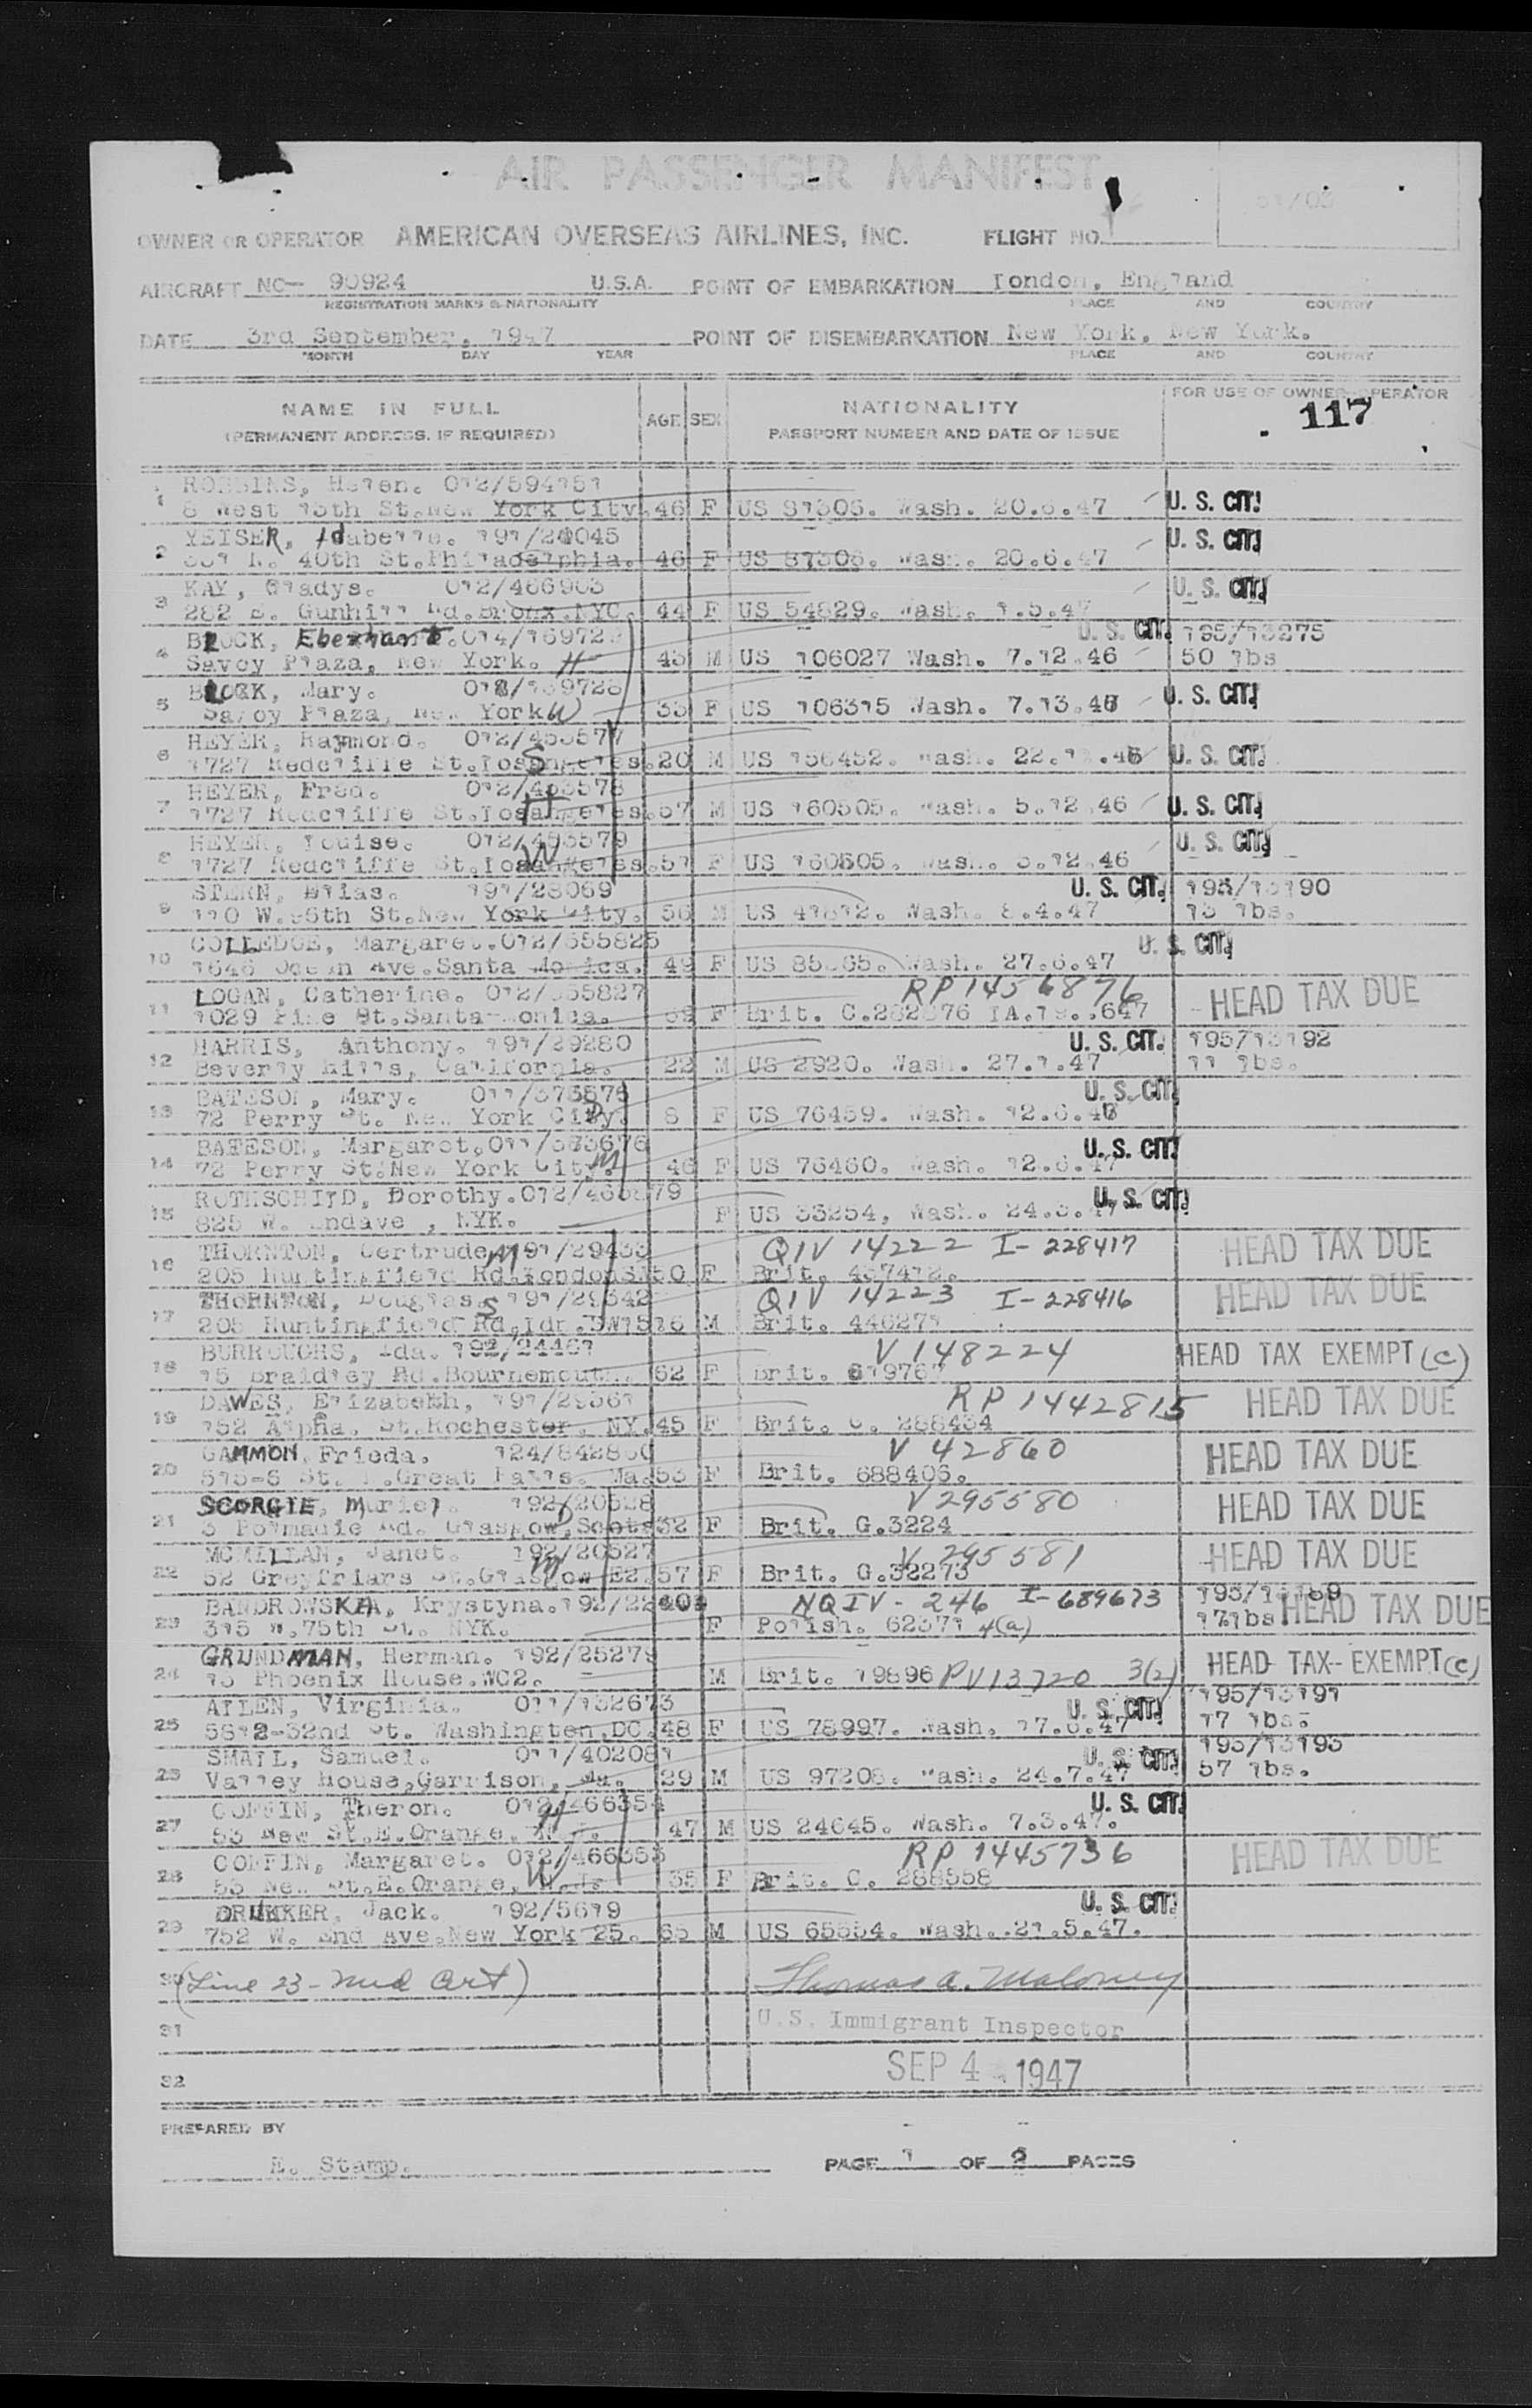 AIR PASSENGER MANIFEST
OWNER OR OPERATOR AMERICAN OVERSEAS AIRLINES, INC. FLIGHT NO.
AIRCRAFT NC- 90924 U.S.A. POINT OF EMBARKATION London, England
REGISTRATION MARKS & NATIONALITY PLACE AND COUNTRY
DATE 3rd September, 1947 POINT OF DISEMBARKATION New York, New York.
MONTH DAY YEAR PLACE AND COUNTRY
NAME IN FULL AGE SEX NATIONALITY FOR USE OF OWNER OPERATOR
(PERMANENT ADDRESS, IF REQUIRED) PASSPORT NUMBER AND DATE OF ISSUE 117
1 ROBBINS, Helen. 012/594151
8 West 13th St. New York City. 46 F US Wash. 20.6.47 U. S. CIT.
2 YEISER, Idabelle.
N. 40th St. Philadelphia. 46 F US Wash. 20.6.47 U. S. CIT.
3 KAY, Gladys. 012/466903
282 E. Gunhill Rd. Bronx. NYC. 44 F US 54829. Wash. 1.5.47 U. S. CIT.
4 BLOCK, Eberhard. U. S. CIT. 195/13275
Savoy Plaza, New York. H 43 M US 106027 Wash. 7.12.46 50 lbs
5 BLOCK, Mary.
Savoy Plaza, New York W 33 F US 106315 Wash. U. S. CIT.
6 HEYER, Raymond. 012/453577
1727 Redcliffe St. Los Angeles. S 20 M US 156452. Wash. U. S. CIT.
7 HEYER, Fred. 012/453578
1727 Redcliffe St. Los Angeles. H 57 M US 160505. Wash. 5.12.46 U. S. CIT.
8 HEYER, Louise. 012/453579
1727 Redcliffe St. Los Angeles. W 51 F US Wash. 46 U. S. CIT.
9 STERN, Elias. 191/28069 U. S. CIT. 195/13190
110 W. 86th St. New York City. 56 M US 41812. Wash. 8.4.47 13 lbs.
10 COLLEDGE, Margaret. 012/555825 U. S. CIT.
1646 Ocean Ave. Santa Monica. 49 F US Wash. 27.6.47
11 LOGAN, Catherine. RP 1456876 HEAD TAX DUE
1029 Pine St. Santa Monica. F Brit. C.
12 HARRIS, Anthony. 191/29280 U. S. CIT. 195/13192
Beverly Hills, California. 22 M US 2920. Wash. 27.1.47 11 lbs.
13 BATESON, Mary. U. S. CIT.
72 Perry St. New York City. D 8 F US 76459. Wash.
14 BATESON, Margaret. U. S. CIT.
72 Perry St. New York City. M 46 F US 76460. Wash. 12.6.47
15 ROTHSCHILD, Dorothy. U. S. CIT.
825 W. Endave, NYK. F US 33254, Wash.
16 THORNTON, Gertrude M QIV 14222 I-228417 HEAD TAX DUE
205 Huntingfield Rd. London 50 F Brit.
17 THORNTON, Douglas S QIV 14223 I-228416 HEAD TAX DUE
205 Huntingfield Rd, Ldn. SW15 16 M Brit. 446271
18 BURROUGHS, Ida. V 148224 HEAD TAX EXEMPT (c)
15 Braidley Rd. Bournemouth. 62 F Brit.
19 DAWES, Elizabeth, RP 1442815 HEAD TAX DUE
152 Alpha. St. Rochester, NY. 45 F Brit. C. 288434
20 GAMMON, Frieda. V 42860 HEAD TAX DUE
Great Falls. 53 F Brit. 688406.
21 SCORGIE, Muriel. 192/20528 V 295580 HEAD TAX DUE
3 Polmadie Rd. Glasgow, Scots D 32 F Brit. G.3224
22 MCMILLAN, Janet. 192/20527 V 295581 HEAD TAX DUE
52 Greyfriars St. Glasgow E2. M 57 F Brit. G.32273
23 BANDROWSKA, Krystyna. NQIV - 246 I-689673 HEAD TAX DUE
315 W. 75th St. NYK. F Polish. 62371 4(a) 17 lbs
24 GRUNDMAN, Herman. 192/25279 HEAD TAX EXEMPT (c)
13 Phoenix House. WC2. M Brit. 19896 PV 13720 3(2)
25 ALLEN, Virginia. 011/132673 U. S. CIT. 195/13191
5612-32nd St. Washington, DC. 48 F US 78997. Wash. 17.6.47 17 lbs.
26 SMALL, Samuel. 011/402081 U. S. CIT. 195/13193
Valley House, Garrison, 29 M US 97208. Wash. 24.7.47 57 lbs.
27 COFFIN, Theron. 012/466354 U. S. CIT.
53 New St. E. Orange, N.J. H 47 M US 24645. Wash. 7.3.47.
28 COFFIN, Margaret. 012/466353 RP 1445736 HEAD TAX DUE
53 New St. E. Orange, N.J. W 35 F Brit. C. 288558
29 DRUKKER, Jack. 192/5619 U. S. CIT.
752 W. End Ave, New York 25. 65 M US 65554. Wash. 21.5.47.
30 (Line 23 - Med Cert) Thomas A. Maloney
31 U.S. Immigrant Inspector
32 SEP 4 1947
PREPARED BY
E. Stamp. PAGE 1 OF 2 PAGES